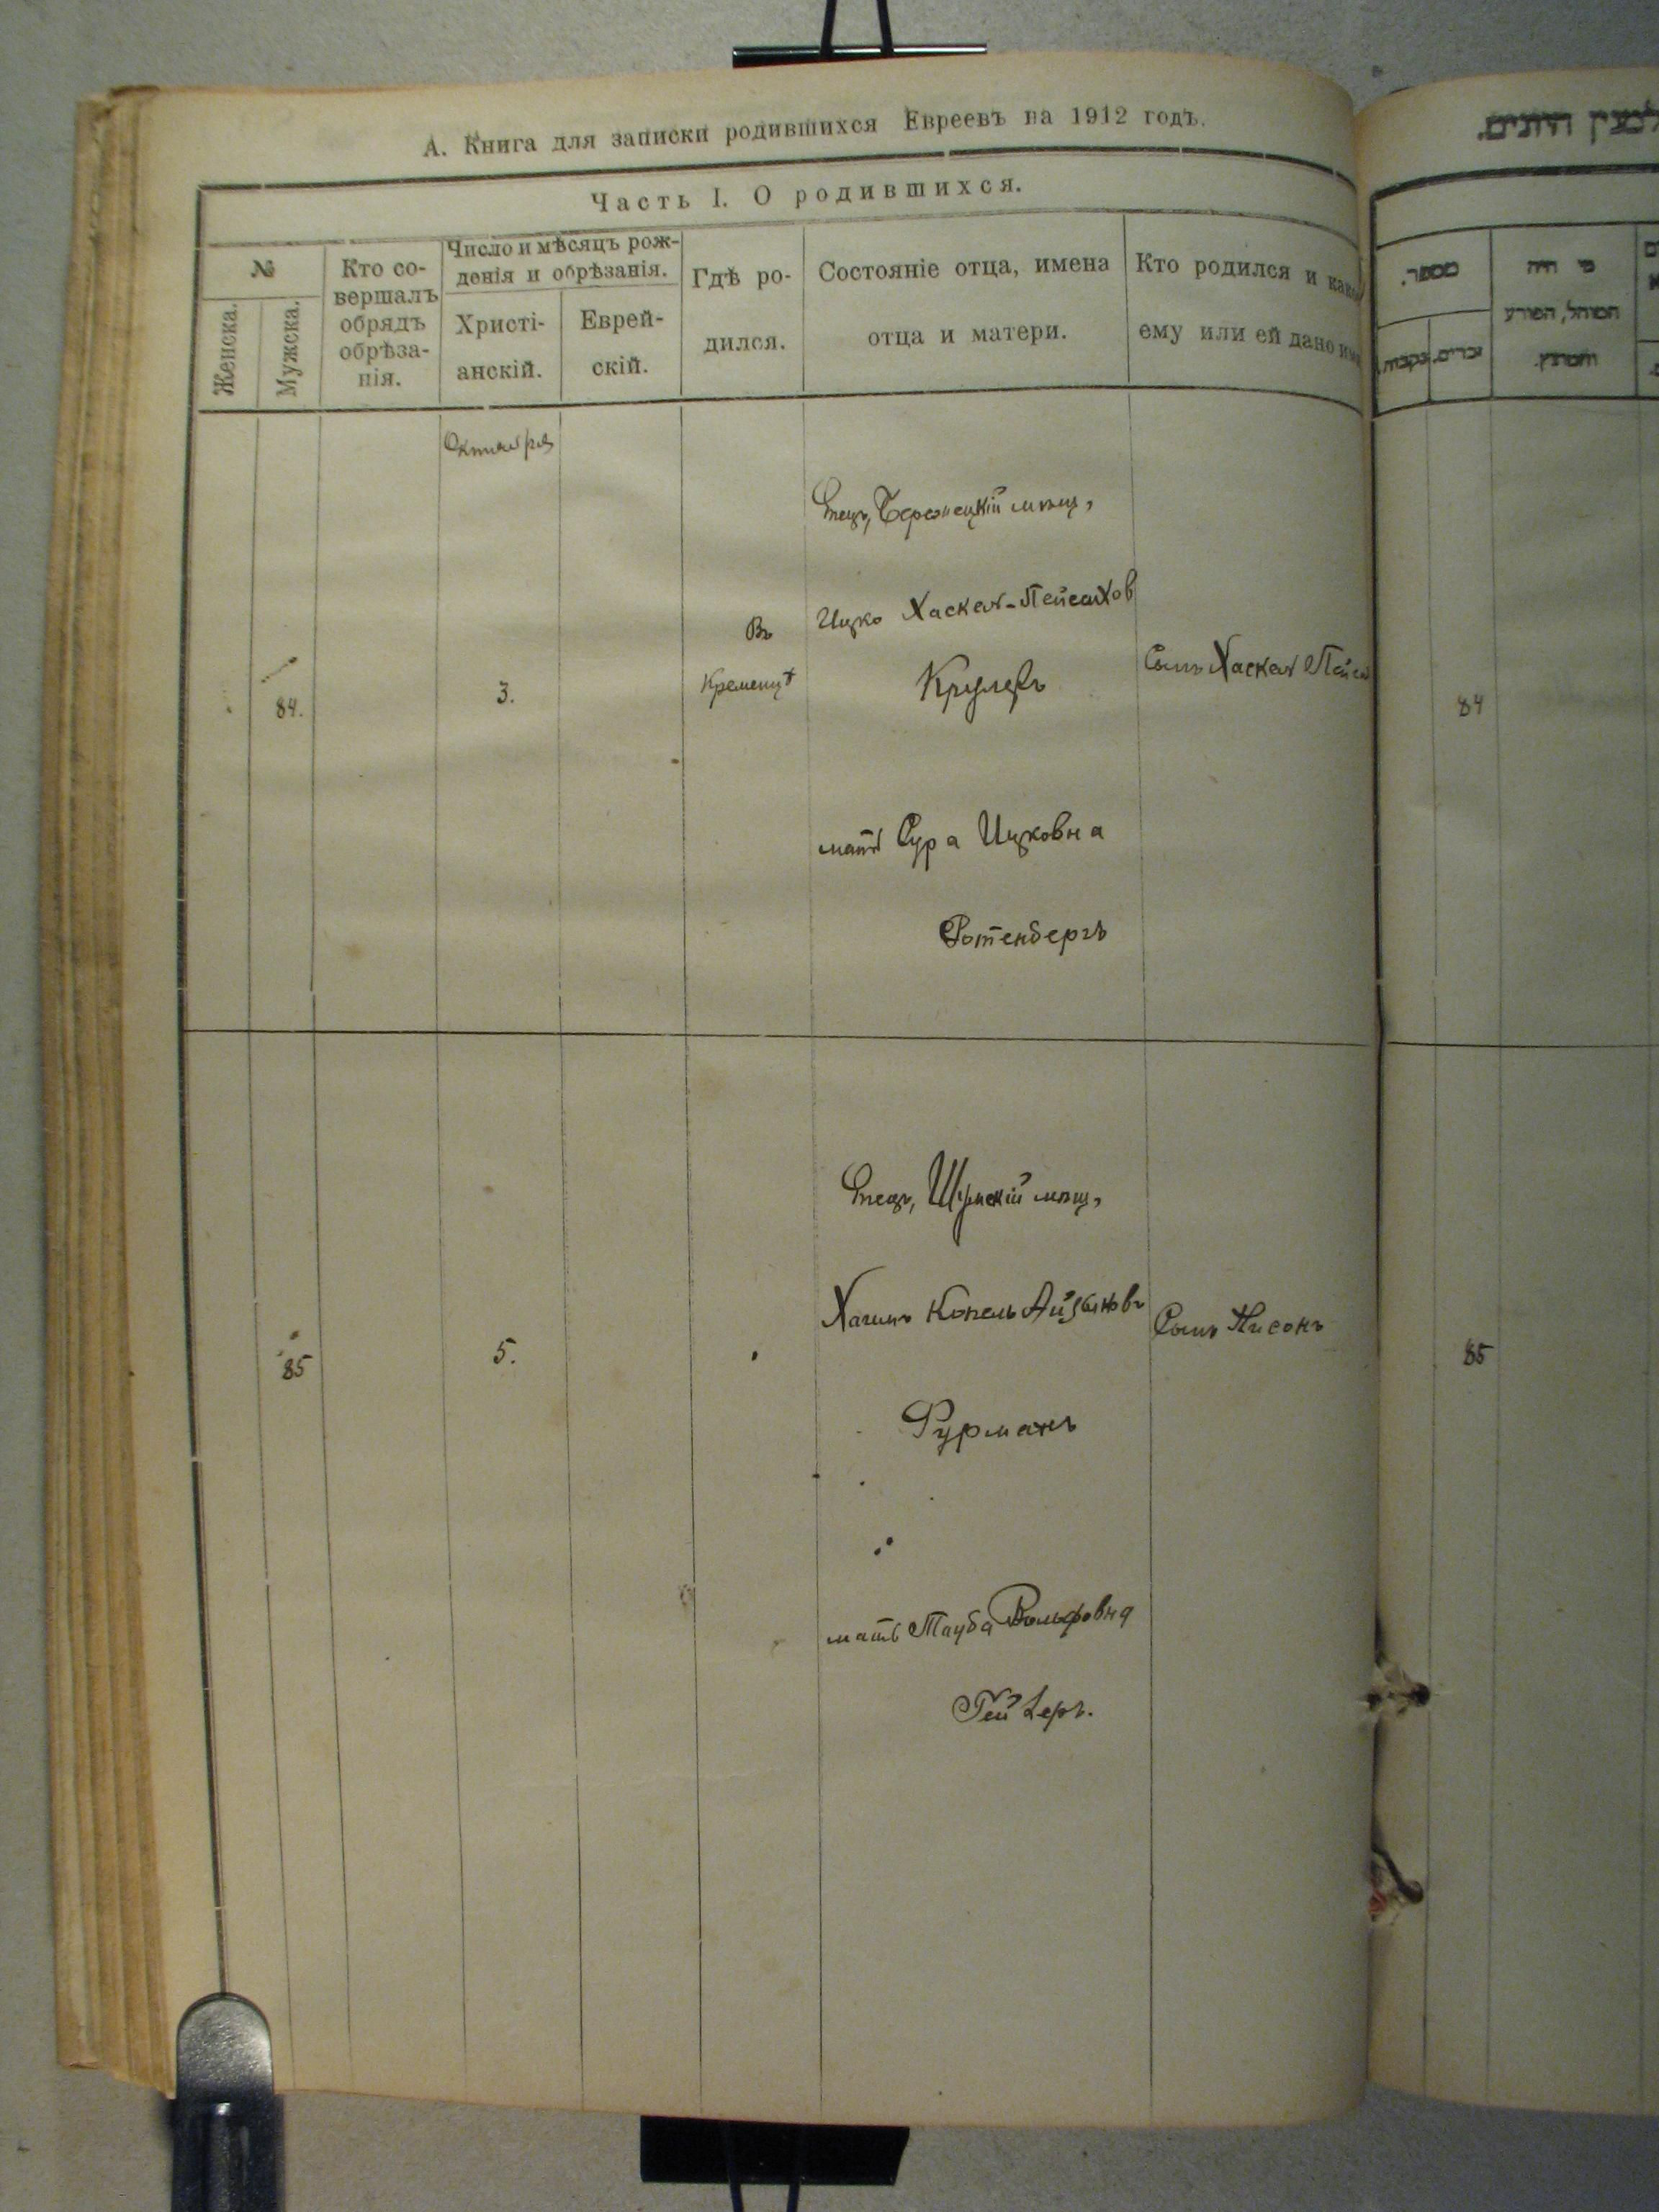 А. Книга для записки родившихся Евреевъ на 1912 годъ.
Часть I. О родившихся.
№
Женска.
Мужска.
Кто со-
вершалъ
обрядъ
обрѣза-
нія.
Число и мѣсяцъ рож-
денія и обрѣзанія.
Христі-
анскій.
Еврей-
скій.
Гдѣ ро-
дился.
Состояніе отца, имена
отца и матери.
Кто родился и како
ему или ей дано имя
Октября
84.
3.
Въ
Кременцѣ
Отецъ, Бережецкій мѣщ,
Ицко Хаскел-Пейсахов
мать Сура Ицковна
Ротенбергъ
Сынъ Хаскел Пейса
85
5.
Отецъ, Шумскій мѣщ,
Хаимъ Копель Айзыковъ
Фурманъ
мать Тауба Вольфовна
Сынъ Нисонъ
מספר.
זכרים.
נקבות.
מי היה
המוהל, הפורע
והמוצץ.
84
85